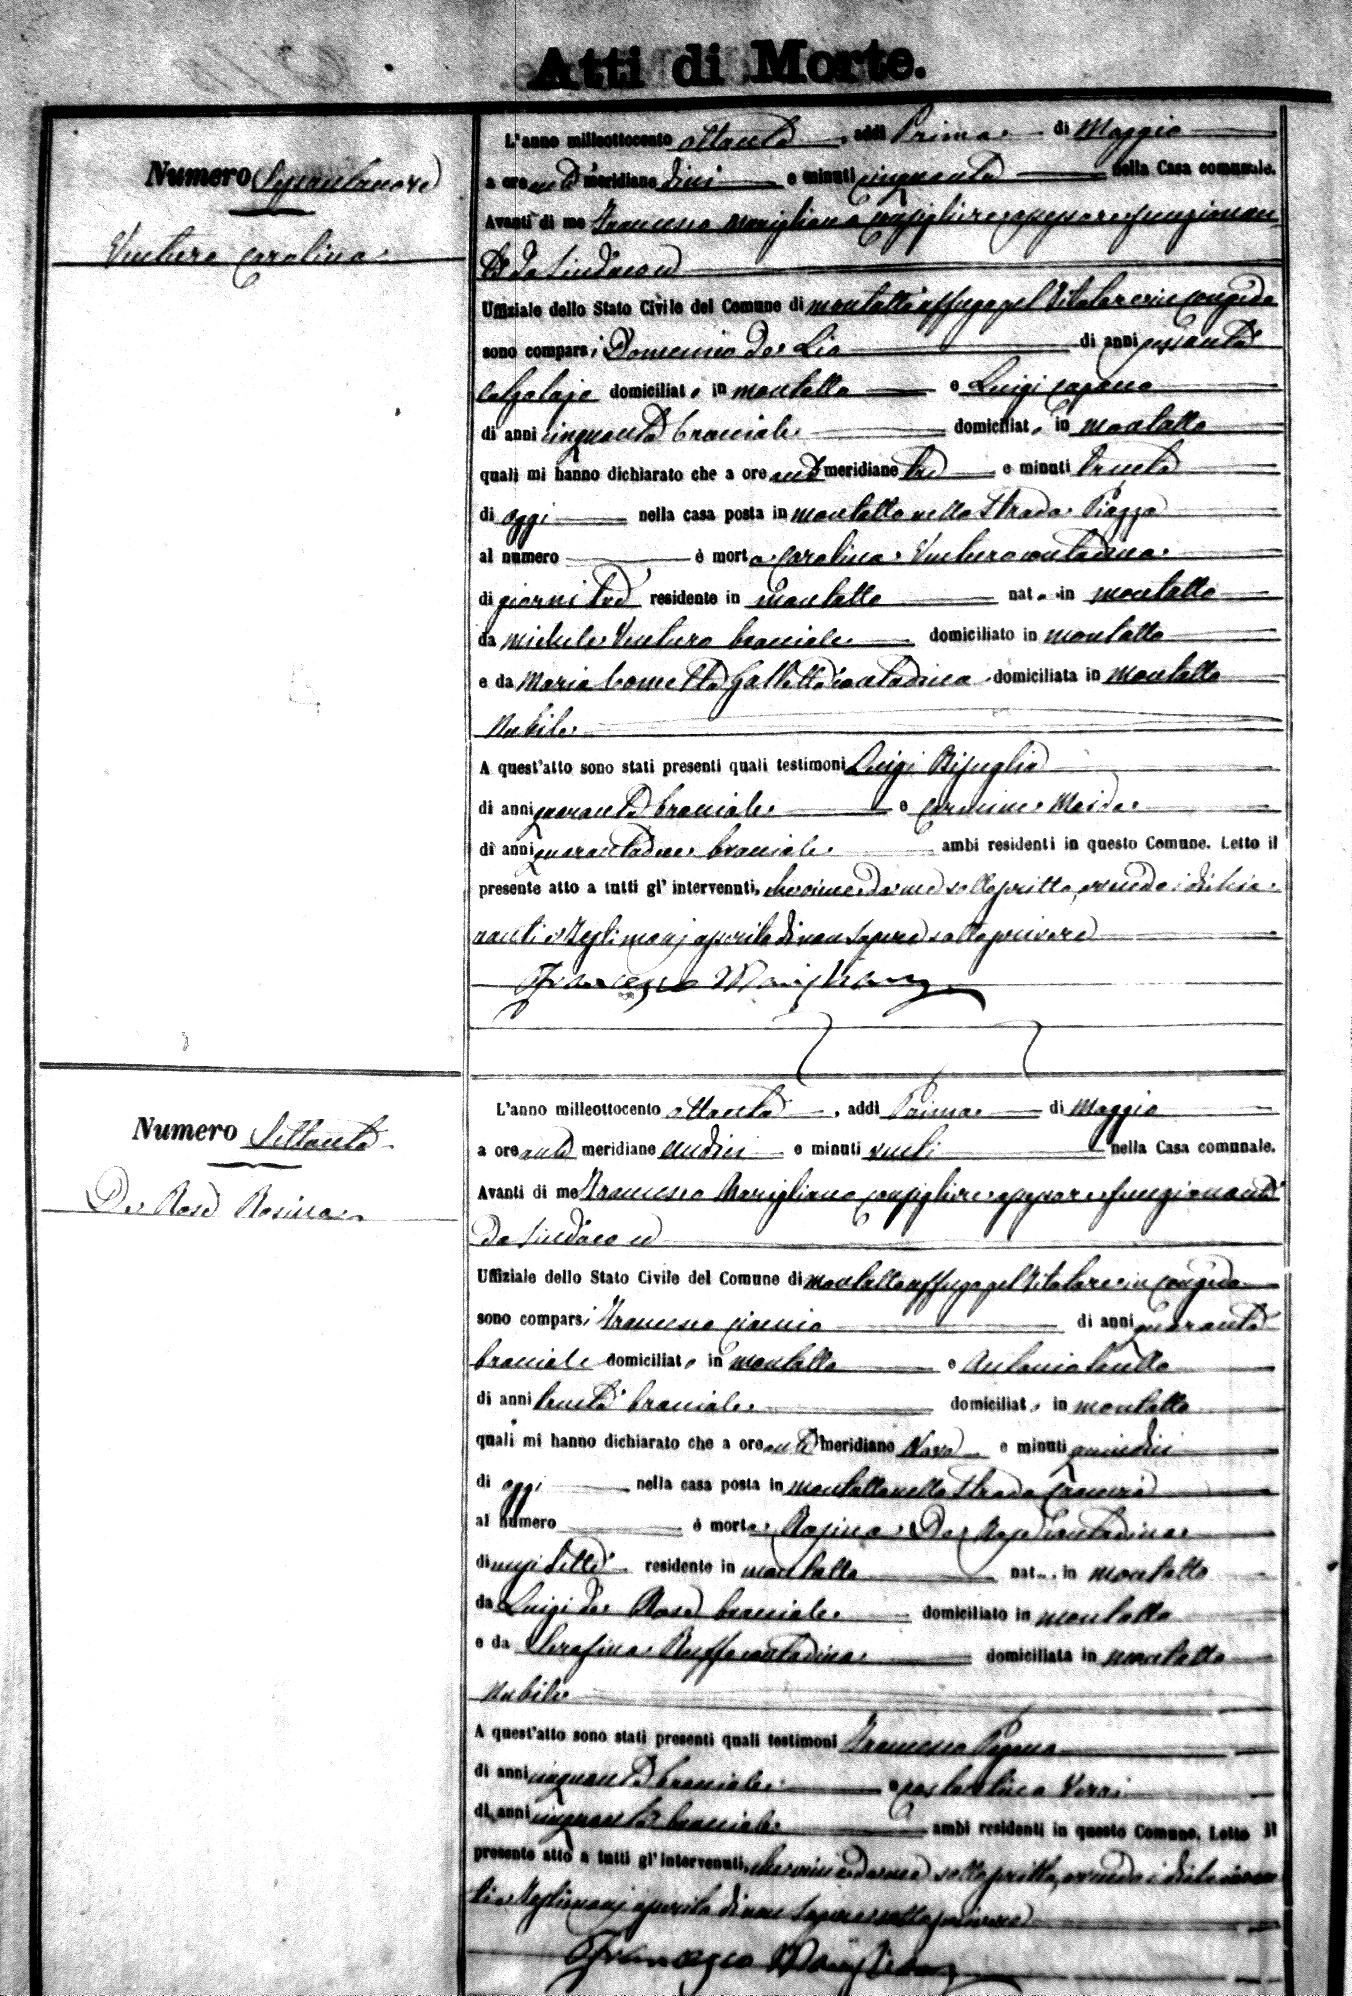 Atti di Morte.
Numero Sessantanove
Venturo Carolina
L'anno milleottocento ottanta, addì Primo di Maggio
a ore anti meridiane dieci e minuti cinquanta nella Casa comunale.
Avanti di me Francesco Marigliano Consigliere assessore funzionan-
te da Sindaco ed
Uffiziale dello Stato Civile del Comune di Montalto Uffugo pel titolare in congedo
sono comparsi Domenico de Lio di anni sessanta
calzolajo domiciliato in Montalto e Luigi Capano
di anni cinquanta bracciale domiciliato in Montalto
quali mi hanno dichiarato che a ore anti meridiane tre e minuti trenta
di oggi nella casa posta in Montalto nella strada Piazza
al numero è morta Carolina Venturo contadina
di giorni tre residente in Montalto nat in Montalto
da Michele Venturo bracciale domiciliato in Montalto
e da Maria contadina domiciliata in Montalto
Nubile
A quest'atto sono stati presenti quali testimoni Luigi Bisuglia
di anni quaranta bracciale e Carmine Maida
di anni quarantadue bracciale ambi residenti in questo Comune. Letto il
presente atto a tutti gl'intervenuti, da me sottoscritto, avendo i dichia-
ranti e testimonj asserito di non sapere sottoscrivere
Francesco Marigliano
Numero Settanta
De Rose Rosina
L'anno milleottocento ottanta, addì Primo di Maggio
a ore anti meridiane undici e minuti venti nella Casa comunale.
Avanti di me Francesco Marigliano Consigliere assessore funzionante
da Sindaco ed
Uffiziale dello Stato Civile del Comune di Montalto Uffugo pel titolare in congedo
sono comparsi Francesco di anni quaranta
bracciale domiciliato in Montalto e Antonio
di anni trenta bracciale domiciliat in Montalto
quali mi hanno dichiarato che a ore anti meridiane Nove e minuti quindici
di oggi nella casa posta in Montalto nella strada
al numero è morta Rosina De Rose contadina
di mesi sette residente in Montalto nat in Montalto
da Luigi de Rose bracciale domiciliato in Montalto
e da Serafina Ruffo contadina domiciliata in Montalto
Nubile
A quest'atto sono stati presenti quali testimoni Francesco Pagano
di anni cinquanta bracciale e Costantino Verri
di anni cinquanta bracciale ambi residenti in questo Comune. Letto il
presente atto a tutti gl'intervenuti, da me sottoscritto, avendo i dichiaran
ti e testimonj asserito di non sapere sottoscrivere
Francesco Marigliano